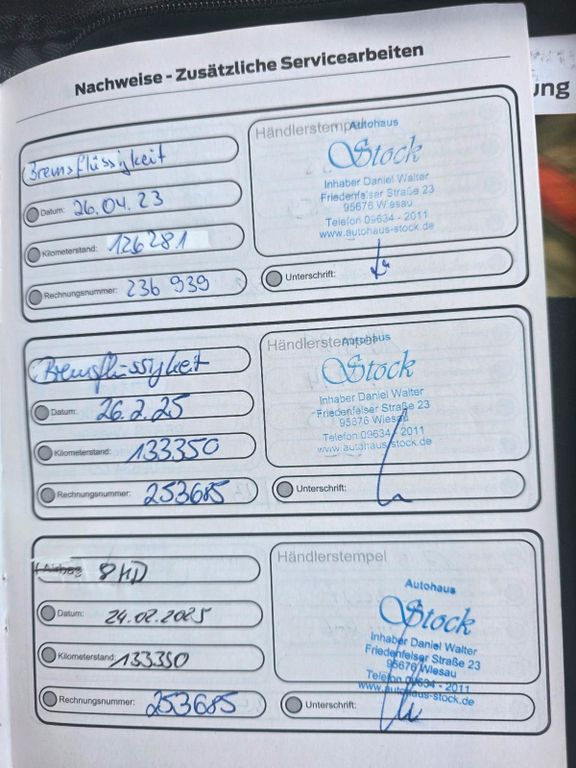 Nachweise - Zusätzliche Servicearbeiten
ung
Bremsflüssigkeit
Datum: 26.04.23
Kilometerstand: 126281
Rechnungsnummer: 236 939
Händlerstempel
Autohaus
Stock
Inhaber Daniel Walter
Friedenfelser Straße 23
95676 Wiesau
Telefon 09634 - 2011
www.autohaus-stock.de
Unterschrift:
Bremsflüssigkeit
Datum: 26.2.25
Kilometerstand: 133350
Rechnungsnummer: 253685
Händlerstempel
Autohaus
Stock
Inhaber Daniel Walter
Friedenfelser Straße 23
95676 Wiesau
Telefon 09634 - 2011
www.autohaus-stock.de
Unterschrift:
Datum: 24.02.2025
Kilometerstand: 133350
Rechnungsnummer: 253685
Händlerstempel
Autohaus
Stock
Inhaber Daniel Walter
Friedenfelser Straße 23
95676 Wiesau
Telefon 09634 - 2011
www.autohaus-stock.de
Unterschrift: